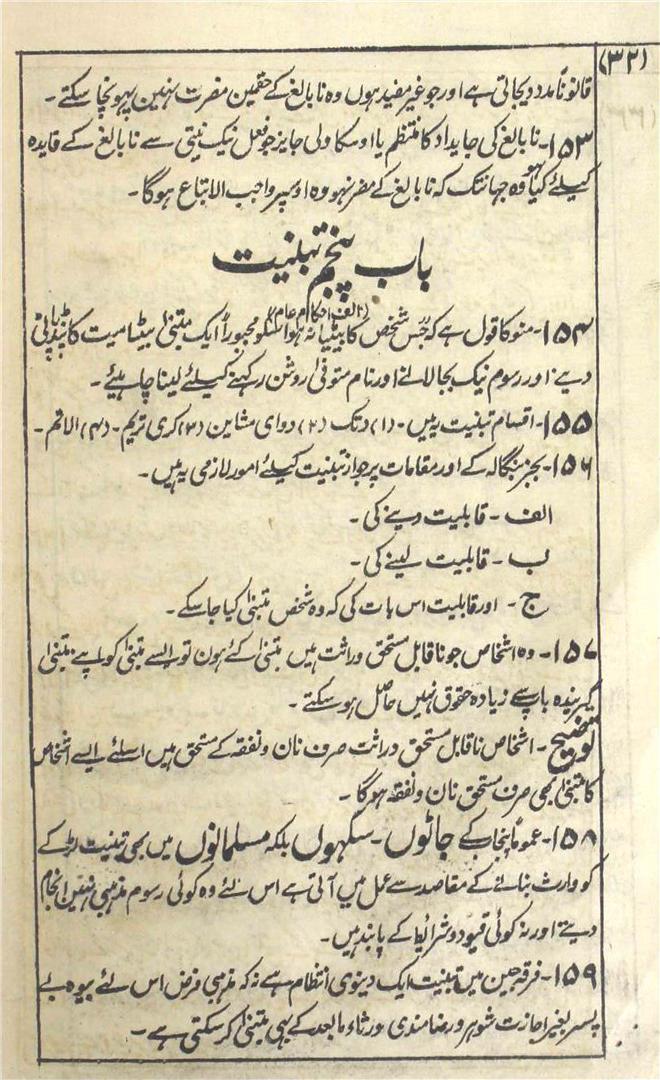 (۳۲)
قانوناً مدد دیجاتی ہے اور جو غیر مفید ہوں وہ نابالغ کے حقمین مضرت نہین پہونچا سکتے۔
۱۵۳- نابالغ کی جایداد کا منتظم یا اوسکا ولی جایز جو فعل نیک نیتی سے نابالغ کے فایدہ
کیلئے کیا ہو وہ جہانتک کہ نابالغ کے مضر نہو وہ اوسپر واجب الاتباع ہوگا۔
باب پنجم تبنیت
(الف) احکام عام
۱۵۴- منو کا قول ہے کہ جس شخص کا بیٹا نہ ہو اسکو مجبوراً ایک متبنیٰ بیٹا میت کا پنڈ پانی
دینے اور رسوم نیک بجا لانے اور نام متوفی روشن رکہنے کیلئے لینا چاہیئے۔
۱۵۵- اقسام تبنیت یہ ہیں۔ (۱) دتک (۲) دوای مشاین (۳) کری تریم۔ (۴) الاتہم۔
۱۵۶- بجز بنگالہ کے اور مقامات پر جواز تبنیت کیلئے امور لازمی یہ ہیں۔
الف - قابلیت دینے کی۔
ب - قابلیت لینے کی۔
ج - اور قابلیت اس بات کی کہ وہ شخص متبنیٰ کیا جاسکے۔
۱۵۷- وہ اشخاص جو ناقابل مستحق وراثت ہیں متبنیٰ کئے ہون تو ایسے متبنیٰ کو اپنے متبنیٰ
گیرندہ باپ سے زیادہ حقوق نہیں حاصل ہو سکتے۔
توضیح - اشخاص ناقابل مستحق وراثت صرف نان و نفقہ کے مستحق ہیں اسلئے ایسے اشخاص
کا متبنیٰ بھی صرف مستحق نان و نفقہ ہوگا۔
۱۵۸- عموماً پنجاب کے جاٹوں۔ سکہوں بلکہ مسلمانوں میں بھی تبنیت لڑکے
کو وارث بنانے کے مقاصد سے عمل میں آتی ہے اس لئے وہ کوئی رسوم مذہبی نہین انجام
دیتے اور نہ کوئی قیود و شرائط کے پابند ہیں۔
۱۵۹- فرقہ جین میں تبنیت ایک دینوی انتظام ہے نہ کہ مذہبی فرض اس لئے بیوہ بے
پسر بغیر اجازت شوہر و رضامندی ورثاء مابعد کے بھی متبنیٰ کر سکتی ہے۔